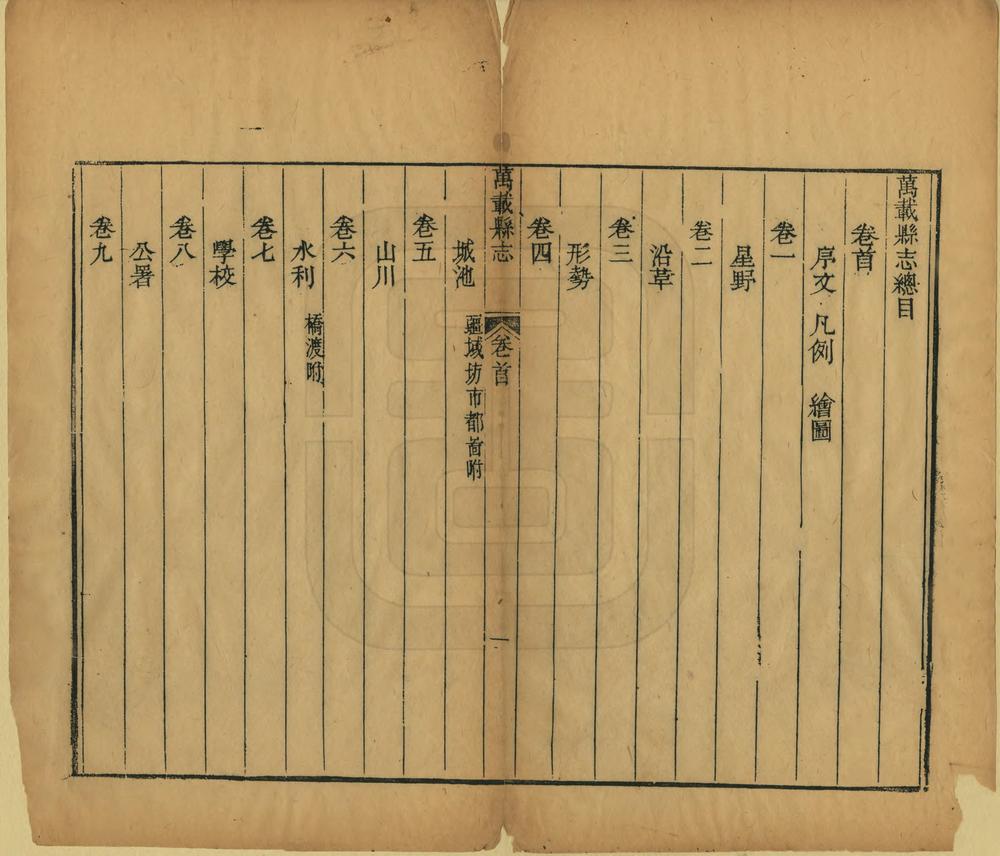 萬載縣志總目
卷首
序文 凡例 繪圖
卷一
星野
卷二
沿革
卷三
形勢
卷四
萬載縣志 卷首 一
城池 疆域坊市都啚附
卷五
山川
卷六
水利 橋渡附
卷七
學校
卷八
公署
卷九